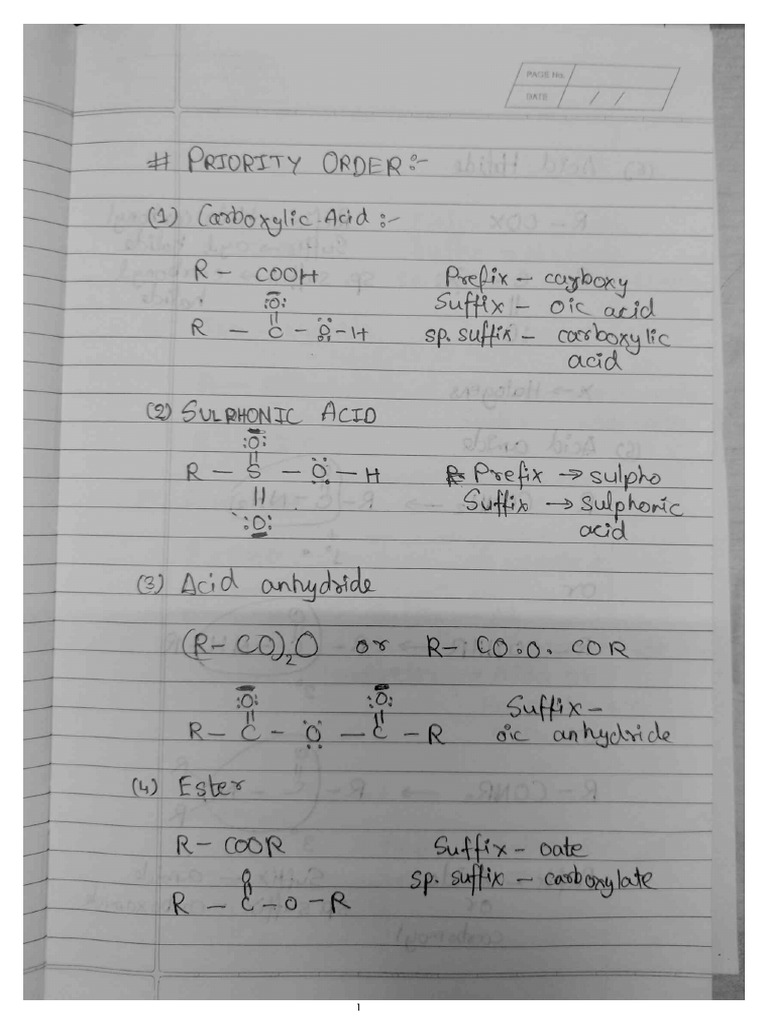 PAGE No.
DATE / /
# PRIORITY ORDER:-
(1) Carboxylic Acid :-
R - COOH Prefix - carboxy
:O: Suffix - oic acid
R - C - O - H sp. suffix - carboxylic
acid
(2) SULPHONIC ACID
:O:
R - S - O - H Prefix → sulpho
|| Suffix → sulphonic
:O: acid
(3) Acid anhydride
(R-CO)₂O or R-CO.O.COR
:O: :O: Suffix -
R - C - O - C - R oic anhydride
(4) Ester
R - COOR Suffix - oate
O sp. suffix - carboxylate
R - C - O - R
1